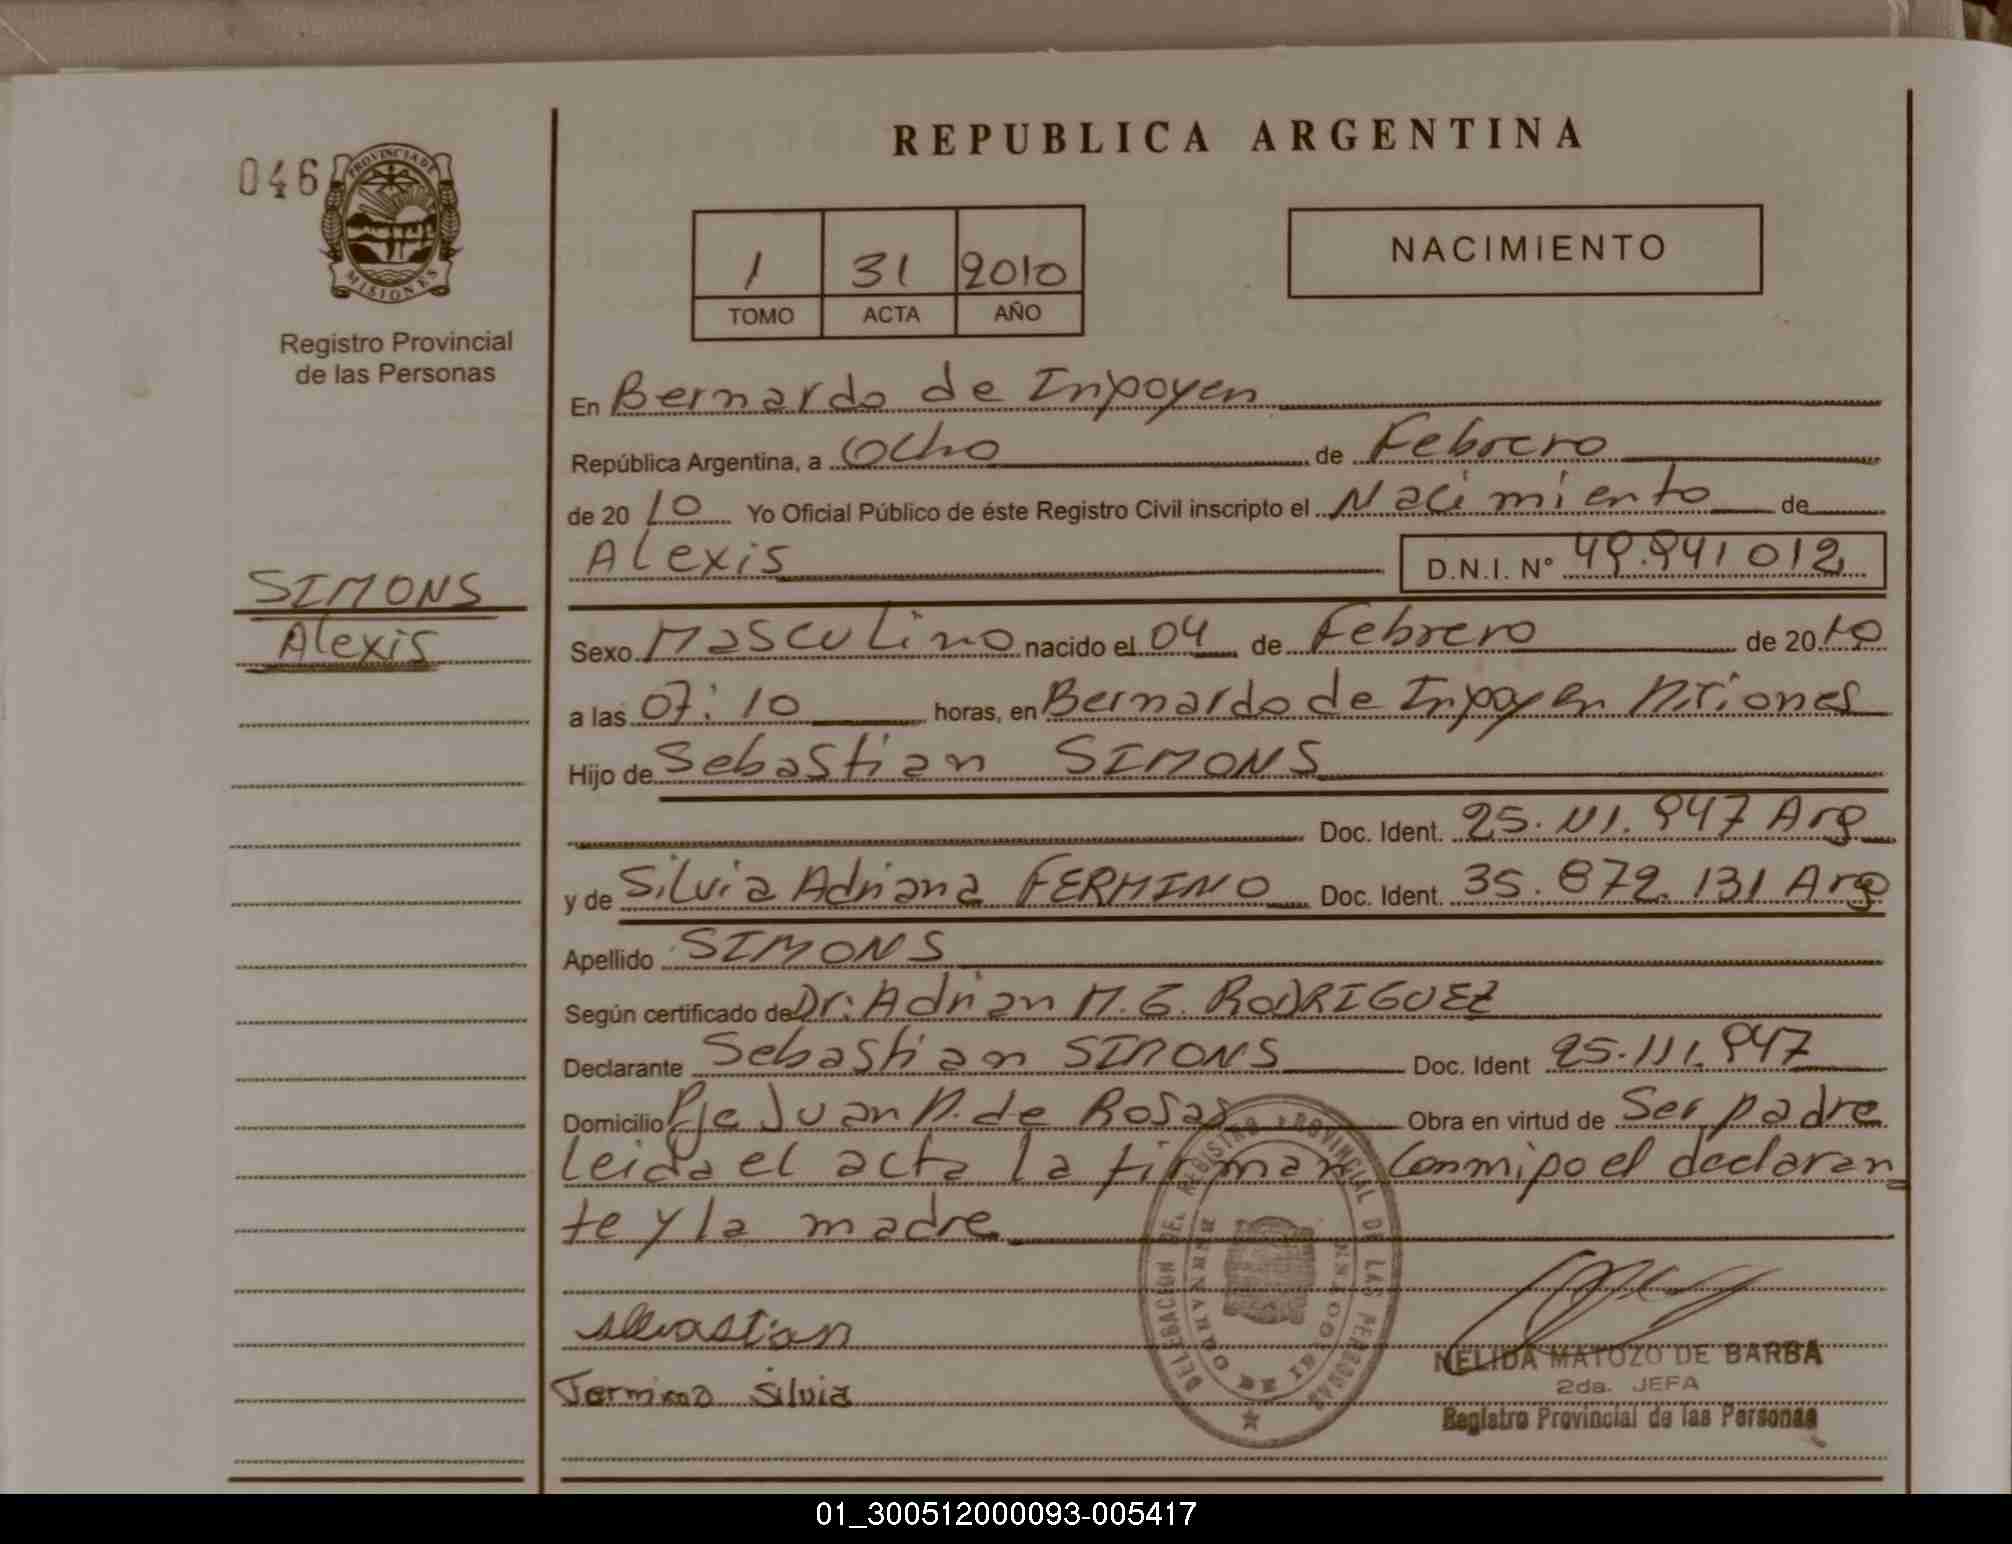 REPUBLICA ARGENTINA
046
PROVINCIA DE
MISIONES
Registro Provincial
de las Personas
1 31 2010
TOMO ACTA AÑO
NACIMIENTO
En Bernardo de Irigoyen
República Argentina, a Ocho de Febrero
de 20 10 Yo Oficial Público de éste Registro Civil inscripto el Nacimiento de
Alexis D.N.I. N° 49.941 012
SIMONS
Alexis
Sexo Masculino nacido el 04 de Febrero de 20 10
a las 07:10 horas, en Bernardo de Irigoyen Misiones
Hijo de Sebastian SIMONS
Doc. Ident. 25.111.947 Arg
y de Silvia Adriana FERMINO Doc. Ident. 35.872.131 Arg
Apellido SIMONS
Según certificado de Dr. Adrian M. G. RODRIGUEZ
Declarante Sebastian SIMONS Doc. Ident 25.111.947
Domicilio Pje Juan M. de Rosas Obra en virtud de Ser padre
Leida el acta la firman conmigo el declaran
te y la madre
DELEGACION DEL REGISTRO PROVINCIAL DE LAS PERSONAS
Sebastian
Fermino Silvia
NELIDA MATOZO DE BARBA
2da. JEFA
Registro Provincial de las Personas
01_300512000093-005417